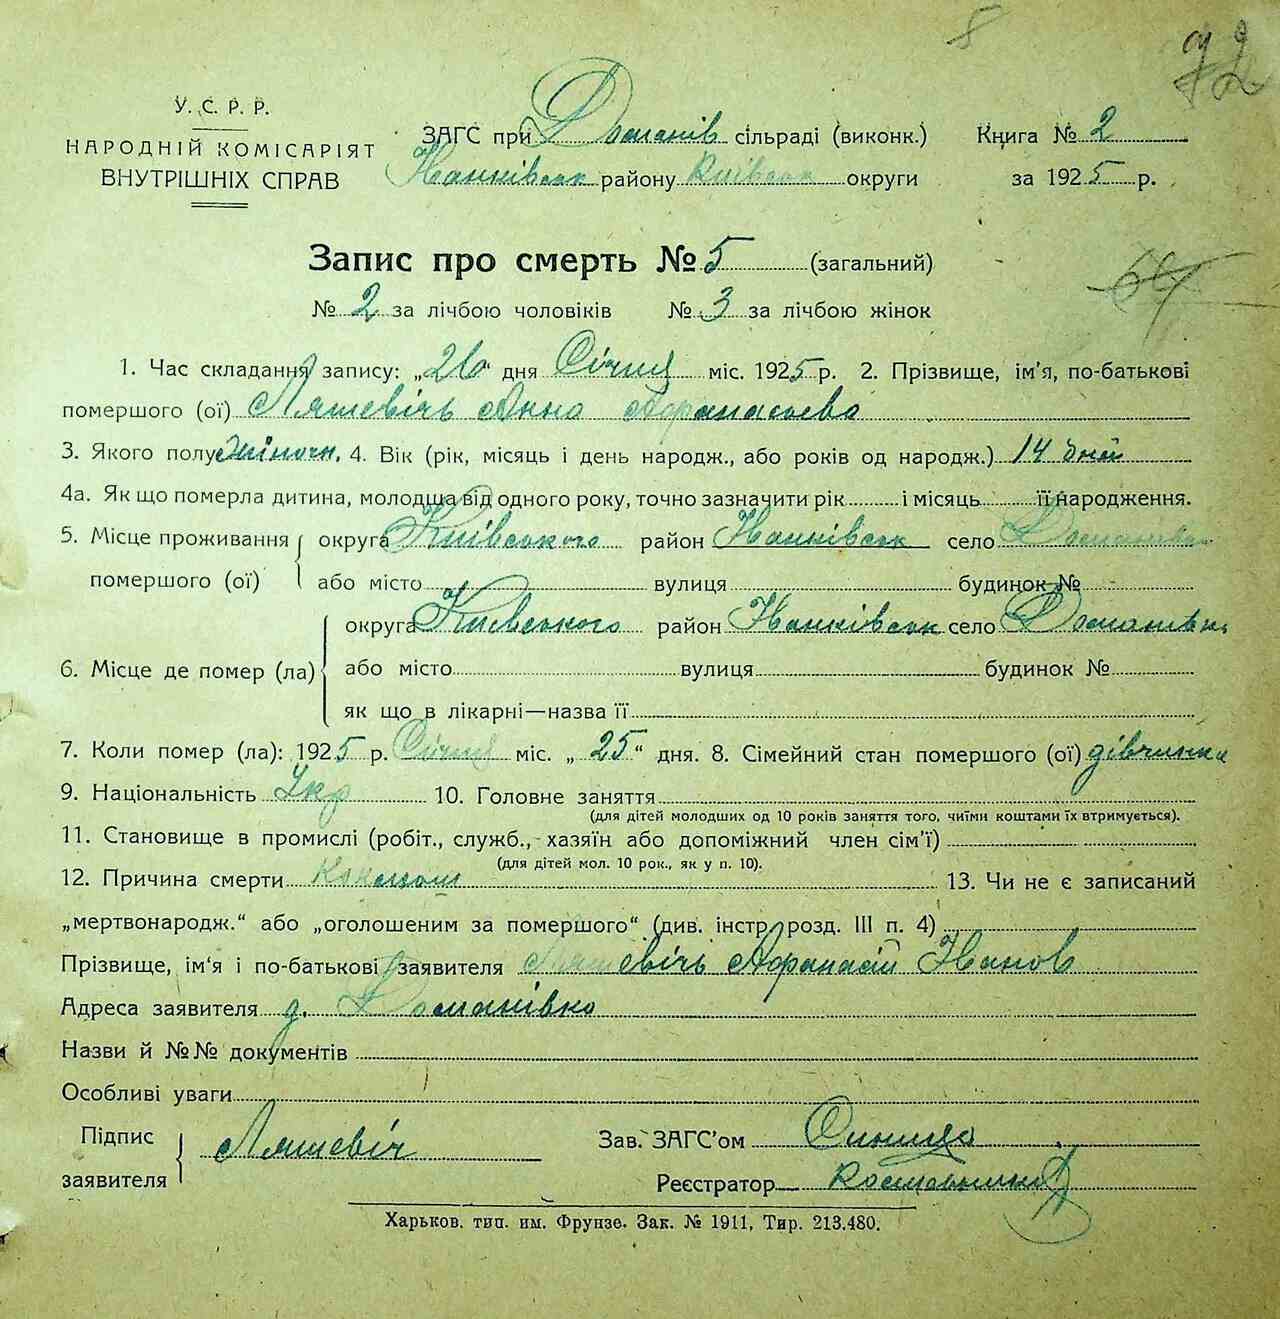 8
92
У.С.Р.Р.
НАРОДНІЙ КОМІСАРІЯТ
ВНУТРІШНІХ СПРАВ
ЗАГС при Доманів сільраді (виконк.) Книга № 2
Іванківськ району Київськ округи за 1925 р.
Запис про смерть № 5 (загальний)
№ 2 за лічбою чоловіків № 3 за лічбою жінок
64
1. Час складання запису: „26“ дня Січня міс. 1925 р. 2. Прізвище, ім'я, по-батькові
помершого (ої) Ляшевічь Анна Афранасьева
3. Якого полу жіночн. 4. Вік (рік, місяць і день народж., або років од народж.) 14 дней
4а. Як що померла дитина, молодща від одного року, точно зазначити рік і місяць її народження.
5. Місце проживання помершого (ої) округа Київського район Іванківськ село Доманівка
або місто вулиця будинок №
6. Місце де помер (ла) округа Киевського район Іванківськ село Доманівка
або місто вулиця будинок №
як що в лікарні—назва її
7. Коли помер (ла): 1925 р. Січня міс. „25“ дня. 8. Сімейний стан помершого (ої) дівчинка
9. Національність Укр 10. Головне заняття
(для дітей молодших од 10 років заняття того, чиїми коштами їх втримується).
11. Становище в промислі (робіт., служб., хазяїн або допоміжний член сім'ї)
(для дітей мол. 10 рок., як у п. 10).
12. Причина смерти 13. Чи не є записаний
„мертвонародж.“ або „оголошеним за помершого“ (див. інстр. розд. III п. 4)
Прізвище, ім'я і по-батькові заявителя Ляшевічь Афранасій Іванов
Адреса заявителя д. Доманівка
Назви й №№ документів
Особливі уваги
Підпис заявителя Ляшевіч Зав. ЗАГС'ом
Реєстратор
Харьков. тип. им. Фрунзе. Зак. № 1911, Тир. 213.480.